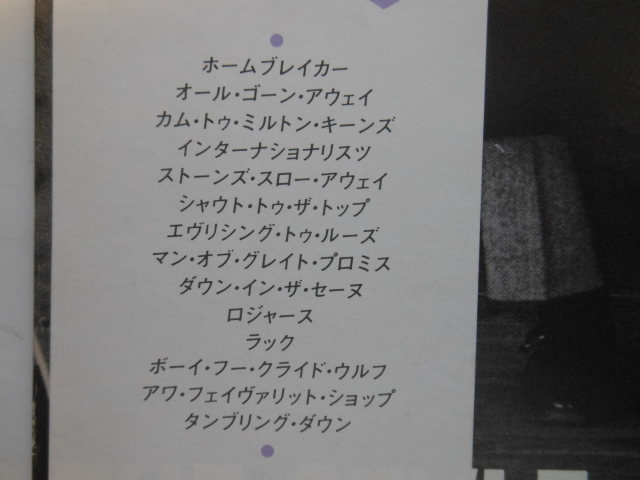 ホームブレイカー
オール・ゴーン・アウェイ
カム・トゥ・ミルトン・キーンズ
インターナショナリスツ
ストーンズ・スロー・アウェイ
シャウト・トゥ・ザ・トップ
エヴリシング・トゥ・ルーズ
マン・オブ・グレイト・プロミス
ダウン・イン・ザ・セーヌ
ロジャース
ラック
ボーイ・フー・クライド・ウルフ
アワ・フェイヴァリット・ショップ
タンブリング・ダウン